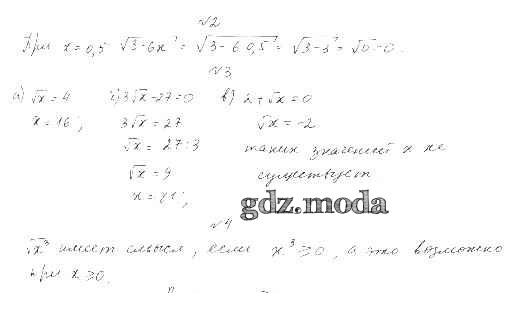 №2
При x = 0,5 √3-6x = √3-6·0,5 = √3-3 = √0 = 0.
№3
а) √x = 4 б) 3√x-27=0 в) 2+√x=0
x = 16; 3√x = 27 √x = -2
√x = 27:3 таких значений x не
√x = 9 существует
x = 81;
gdz.moda
№4
√x³ имеет смысл, если x³ ≥ 0, а это возможно
при x ≥ 0.